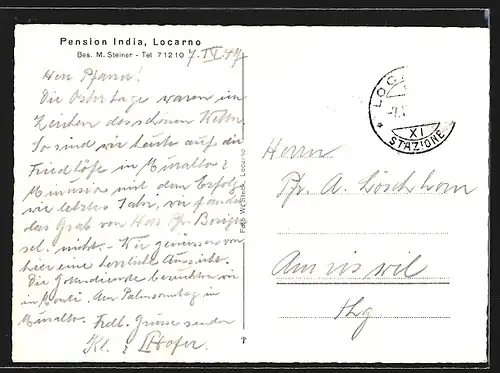 Pension India, Locarno
Bes. M. Steiner - Tel 71210
7. IV. 47
Herr Pfarrer!
Die Ostertage waren im
Zeichen des schönen Wetters.
So sind wir heute auf die
Friedhöfe in Muralto &
Minusio mit dem Erfolg
wie letztes Jahr, wir fanden
das Grab von Hrn Pfr.
sel. nicht. - Wir geniessen von
hier eine herrliche Aussicht.
Die Gottesdienste besuchten wir
in Monti. Am Palmsonntag in
Muralto. Frdl. Grüsse senden
Kl. & Hofer
Foto W. Steck, Locarno
XI
STAZIONE
Herrn
Pfr. A. Löschhorn
Amriswil
Thg